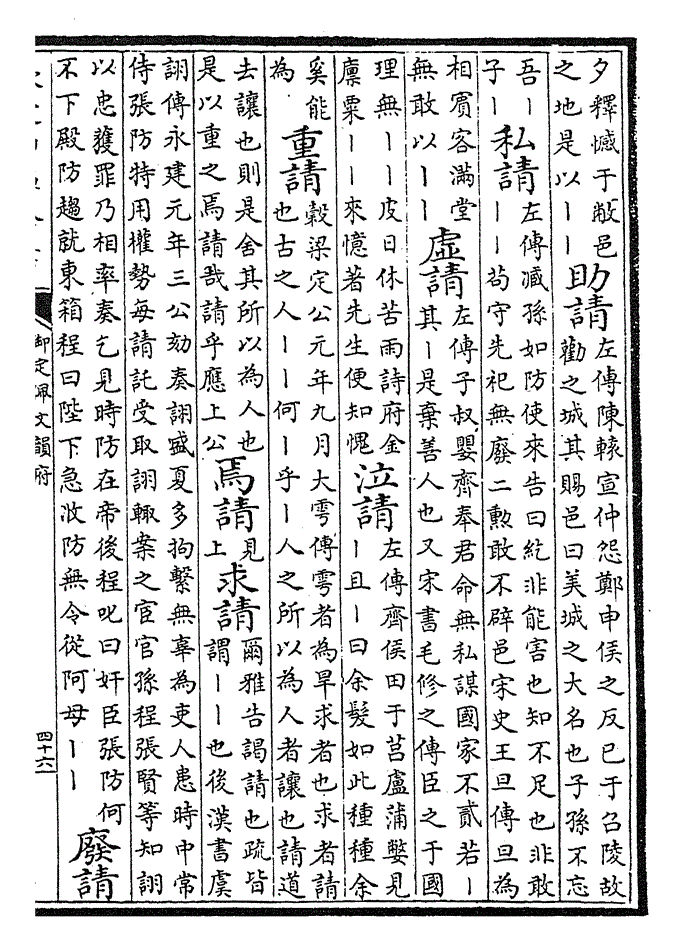 夕釋憾于敝邑
之地是以丨丨
助請
左傳陳轅宣仲怨鄭申侯之反已于召陵故
勸之城其賜邑曰美城之大名也子孫不忘
吾丨
子丨
私請
左傳臧孫如防使來告曰紇非能害也知不足也非敢
苟守先祀無廢二勲敢不辟邑宋史王旦傳旦為
相賓客滿堂
無敢以丨丨
虛請
左傳子叔嬰齊奉君命無私謀國家不貳若丨
其丨是棄善人也又宋書毛修之傳臣之于國
理無丨丨皮日休苦雨詩府金
廪粟丨丨來憶著先生便知愧
泣請
左傳齊侯田于莒盧蒲嫳見
丨且丨曰余髮如此種種余
奚能
為
重請
穀梁定公元年九月大雩傳雩者為旱求者也求者請
也古之人丨丨何丨乎丨人之所以為人者讓也請道
去讓也則是舍其所以為人也
是以重之焉請哉請乎應上公
焉請
見
上
求請
爾雅告謁請也疏皆
謂丨丨也後漢書虞
詡傳永建元年三公劾奏詡盛夏多拘繫無辜為吏人患時中常
侍張防特用權勢每請託受取詡輙案之宦官孫程張賢等知詡
以忠獲罪乃相率奏乞見時防在帝後程叱曰奸臣張防何
不下殿防趨就東箱程曰陛下急收防無令從阿母丨丨
廢請
御定佩文韻府
四十六